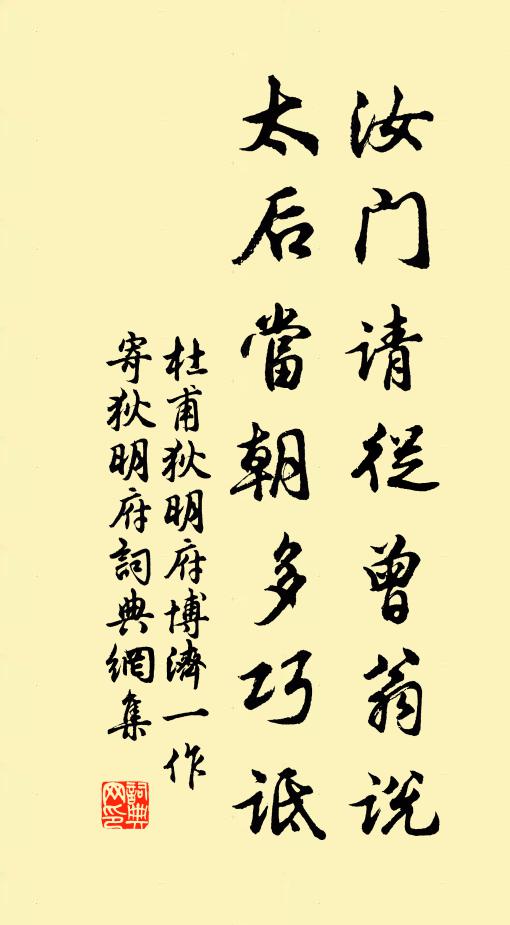 汝门请從曾翁说
太后當朝多巧诋
杜甫狄明府博濟一作
寄狄明府詞典網集
詞典网印